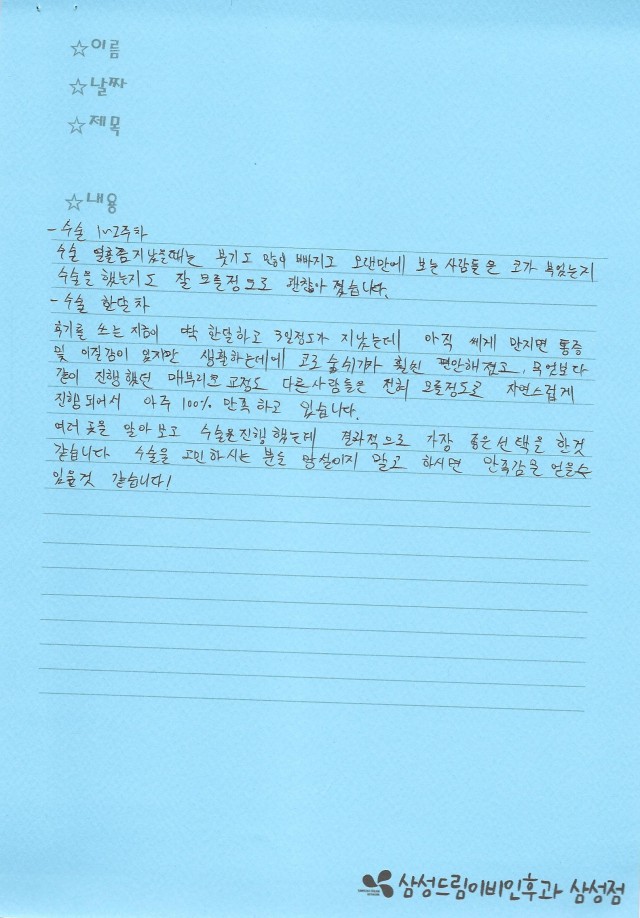 ☆이름
☆날짜
☆제목
☆내용
- 수술 1~2주차
수술 열흘쯤 지났을때는 붓기도 많이 빠지고 오랜만에 보는 사람들은 코가 부었는지
수술을 했는지도 잘 모를정도로 괜찮아 졌습니다.
- 수술 한달차
후기를 쓰는 지금이 딱 한달하고 3일정도가 지났는데 아직 쎄게 만지면 통증
및 이질감이 있지만 생활하는데에 코로 숨쉬기가 훨씬 편안해졌고, 무엇보다
같이 진행했던 매부리코 교정도 다른사람들은 전혀 모를정도로 자연스럽게
진행되어서 아주 100% 만족하고 있습니다.
여러 곳을 알아보고 수술을진행했는데 결과적으로 가장 좋은선택을 한것
같습니다 수술을 고민하시는 분들 망설이지 말고 하시면 만족감을 얻을수
있을것 같습니다!
삼성드림이비인후과 삼성점